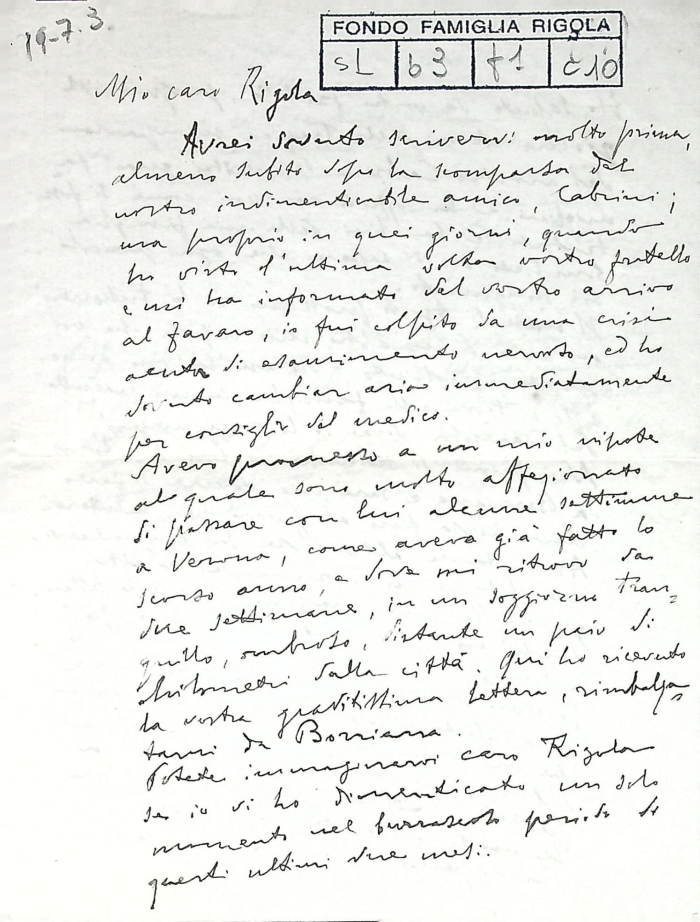 19-7-3.
FONDO FAMIGLIA RIGOLA
SL b3 f1 c10
Mio caro Rigola
Avrei dovuto scrivervi molto prima,
almeno subito dopo la scomparsa del
nostro indimenticabile amico, Cabrini;
ma proprio in quei giorni, quando
ho visto l'ultima volta vostro fratello
e mi ha informato del vostro arrivo
al Favaro, io fui colpito da una crisi
acuta di esaurimento nervoso, ed ho
dovuto cambiar aria immediatamente
per consiglio del medico.
Avevo promesso a un mio nipote
al quale sono molto affezionato
di passare con lui alcune settimane
a Verona, come aveva già fatto lo
scorso anno, e dove mi ritrovo da
due settimane, in un soggiorno tran=
quillo, ombroso, distante un paio di
chilometri dalla città. Qui ho ricevuto
la vostra graditissima lettera, rimbalza=
tami da Borriana.
Potete immaginarvi caro Rigola
se io vi ho dimenticato un solo
momento nel burrascoso periodo di
questi ultimi due mesi.